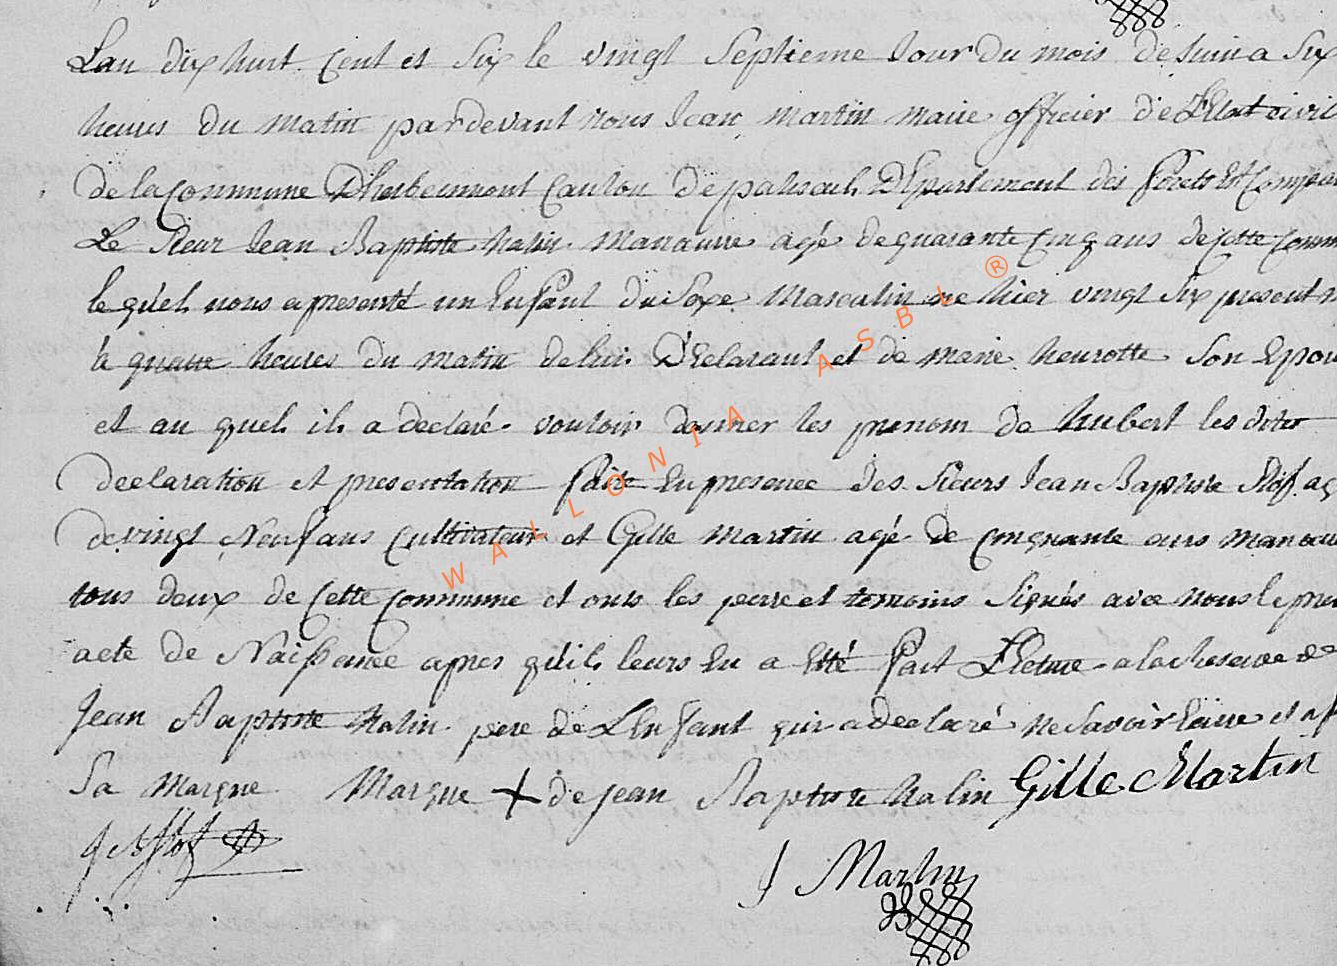 Lan dix huit Cent et Six le vingt Septieme Jour Du mois de Juin a Six
heures du matin pardevant nous Jean martin maire officier de LEtat civil
de la Commune Dherbeumont Canton de paliseul Departement des forets Est Compar
Le Sieur Jean Baptiste halin Manœuvre agé de quarante Cinq ans de Cette Comm
le quel nous a presenté un Enfant du Sexe Masculin ne hier vingt Six present
a quatre heures du matin de lui Declarant et de marie heurotte Son Epou
et au quel il a declaré vouloir donner les prenom de hubert les dites
declaration et presentation faite En presence des Sieurs Jean Baptiste Slof ag
de vingt Neuf ans Cultivateur et Gille Martin agé de Cinquante ans manœu
tous deux de Cette Commune et onts les peere et temoins Signés avec nous le pres
acte de Naissance apres quil leurs En a Eté fait Lecture a la Reserve de
Jean Baptiste halin pere de LEnfant qui a declaré ne Savoir Ecrire et a f
Sa Marque Marque + de jean Baptiste halin Gille Martin
J Martin
WALLONIA ASBL ®